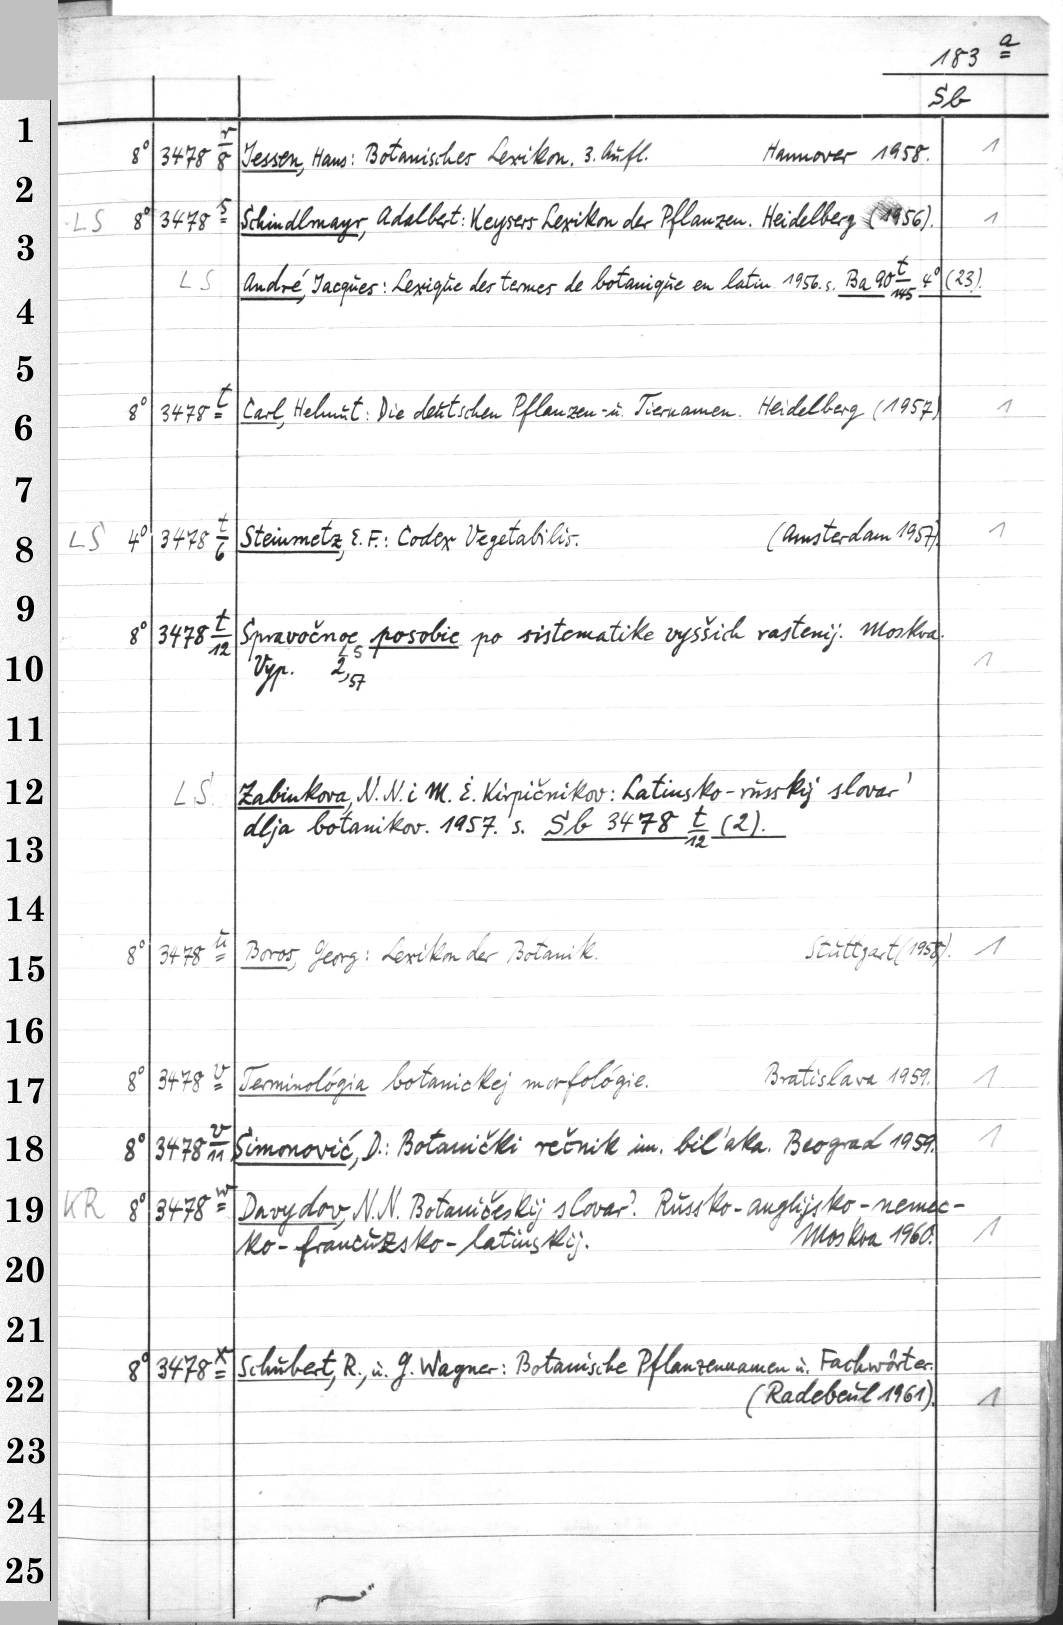 183 a
Sb
1
8° 3478 r/8 Jessen, Hans: Botanisches Lexikon. 3. Aufl. Hannover 1958. 1
2
LS 8° 3478 s Schindlmayr, Adalbert: Keysers Lexikon der Pflanzen. Heidelberg (1956). 1
3
LS André, Jacques: Lexique des termes de botanique en latin 1956. s. Ba 90 t/145 4° (23).
4
5
8° 3478 t Carl, Helmut: Die deutschen Pflanzen- u. Tiernamen. Heidelberg (1957) 1
6
7
LS 4° 3478 t/6 Steinmetz, E. F.: Codex Vegetabilis. (Amsterdam 1957). 1
8
9
8° 3478 t/12 Spravočnoe posobie po sistematike vysšich rastenij. Moskva.
LS
Vyp. 2,57 1
10
11
LS Zabinkova, N. N. i M. E. Kirpičnikov: Latinsko-russkij slovar'
12
dlja botanikov. 1957. s. Sb 3478 t/12 (2).
13
14
8° 3478 u Boros, Georg: Lexikon der Botanik. Stuttgart (1958). 1
15
16
8° 3478 v Terminológia botanickej morfológie. Bratislava 1959. 1
17
8° 3478 v/11 Šimonović, D.: Botanički rečnik im. bil'aka. Beograd 1959. 1
18
KR 8° 3478 w Davydov, N. N. Botaničeskij slovar'. Russko-anglijsko-nemec-
19
ko-francuzsko-latinskij. Moskva 1960. 1
20
21
8° 3478 x Schubert, R., u. G. Wagner: Botanische Pflanzennamen u. Fachwörter.
22
(Radebeul 1961). 1
23
24
25